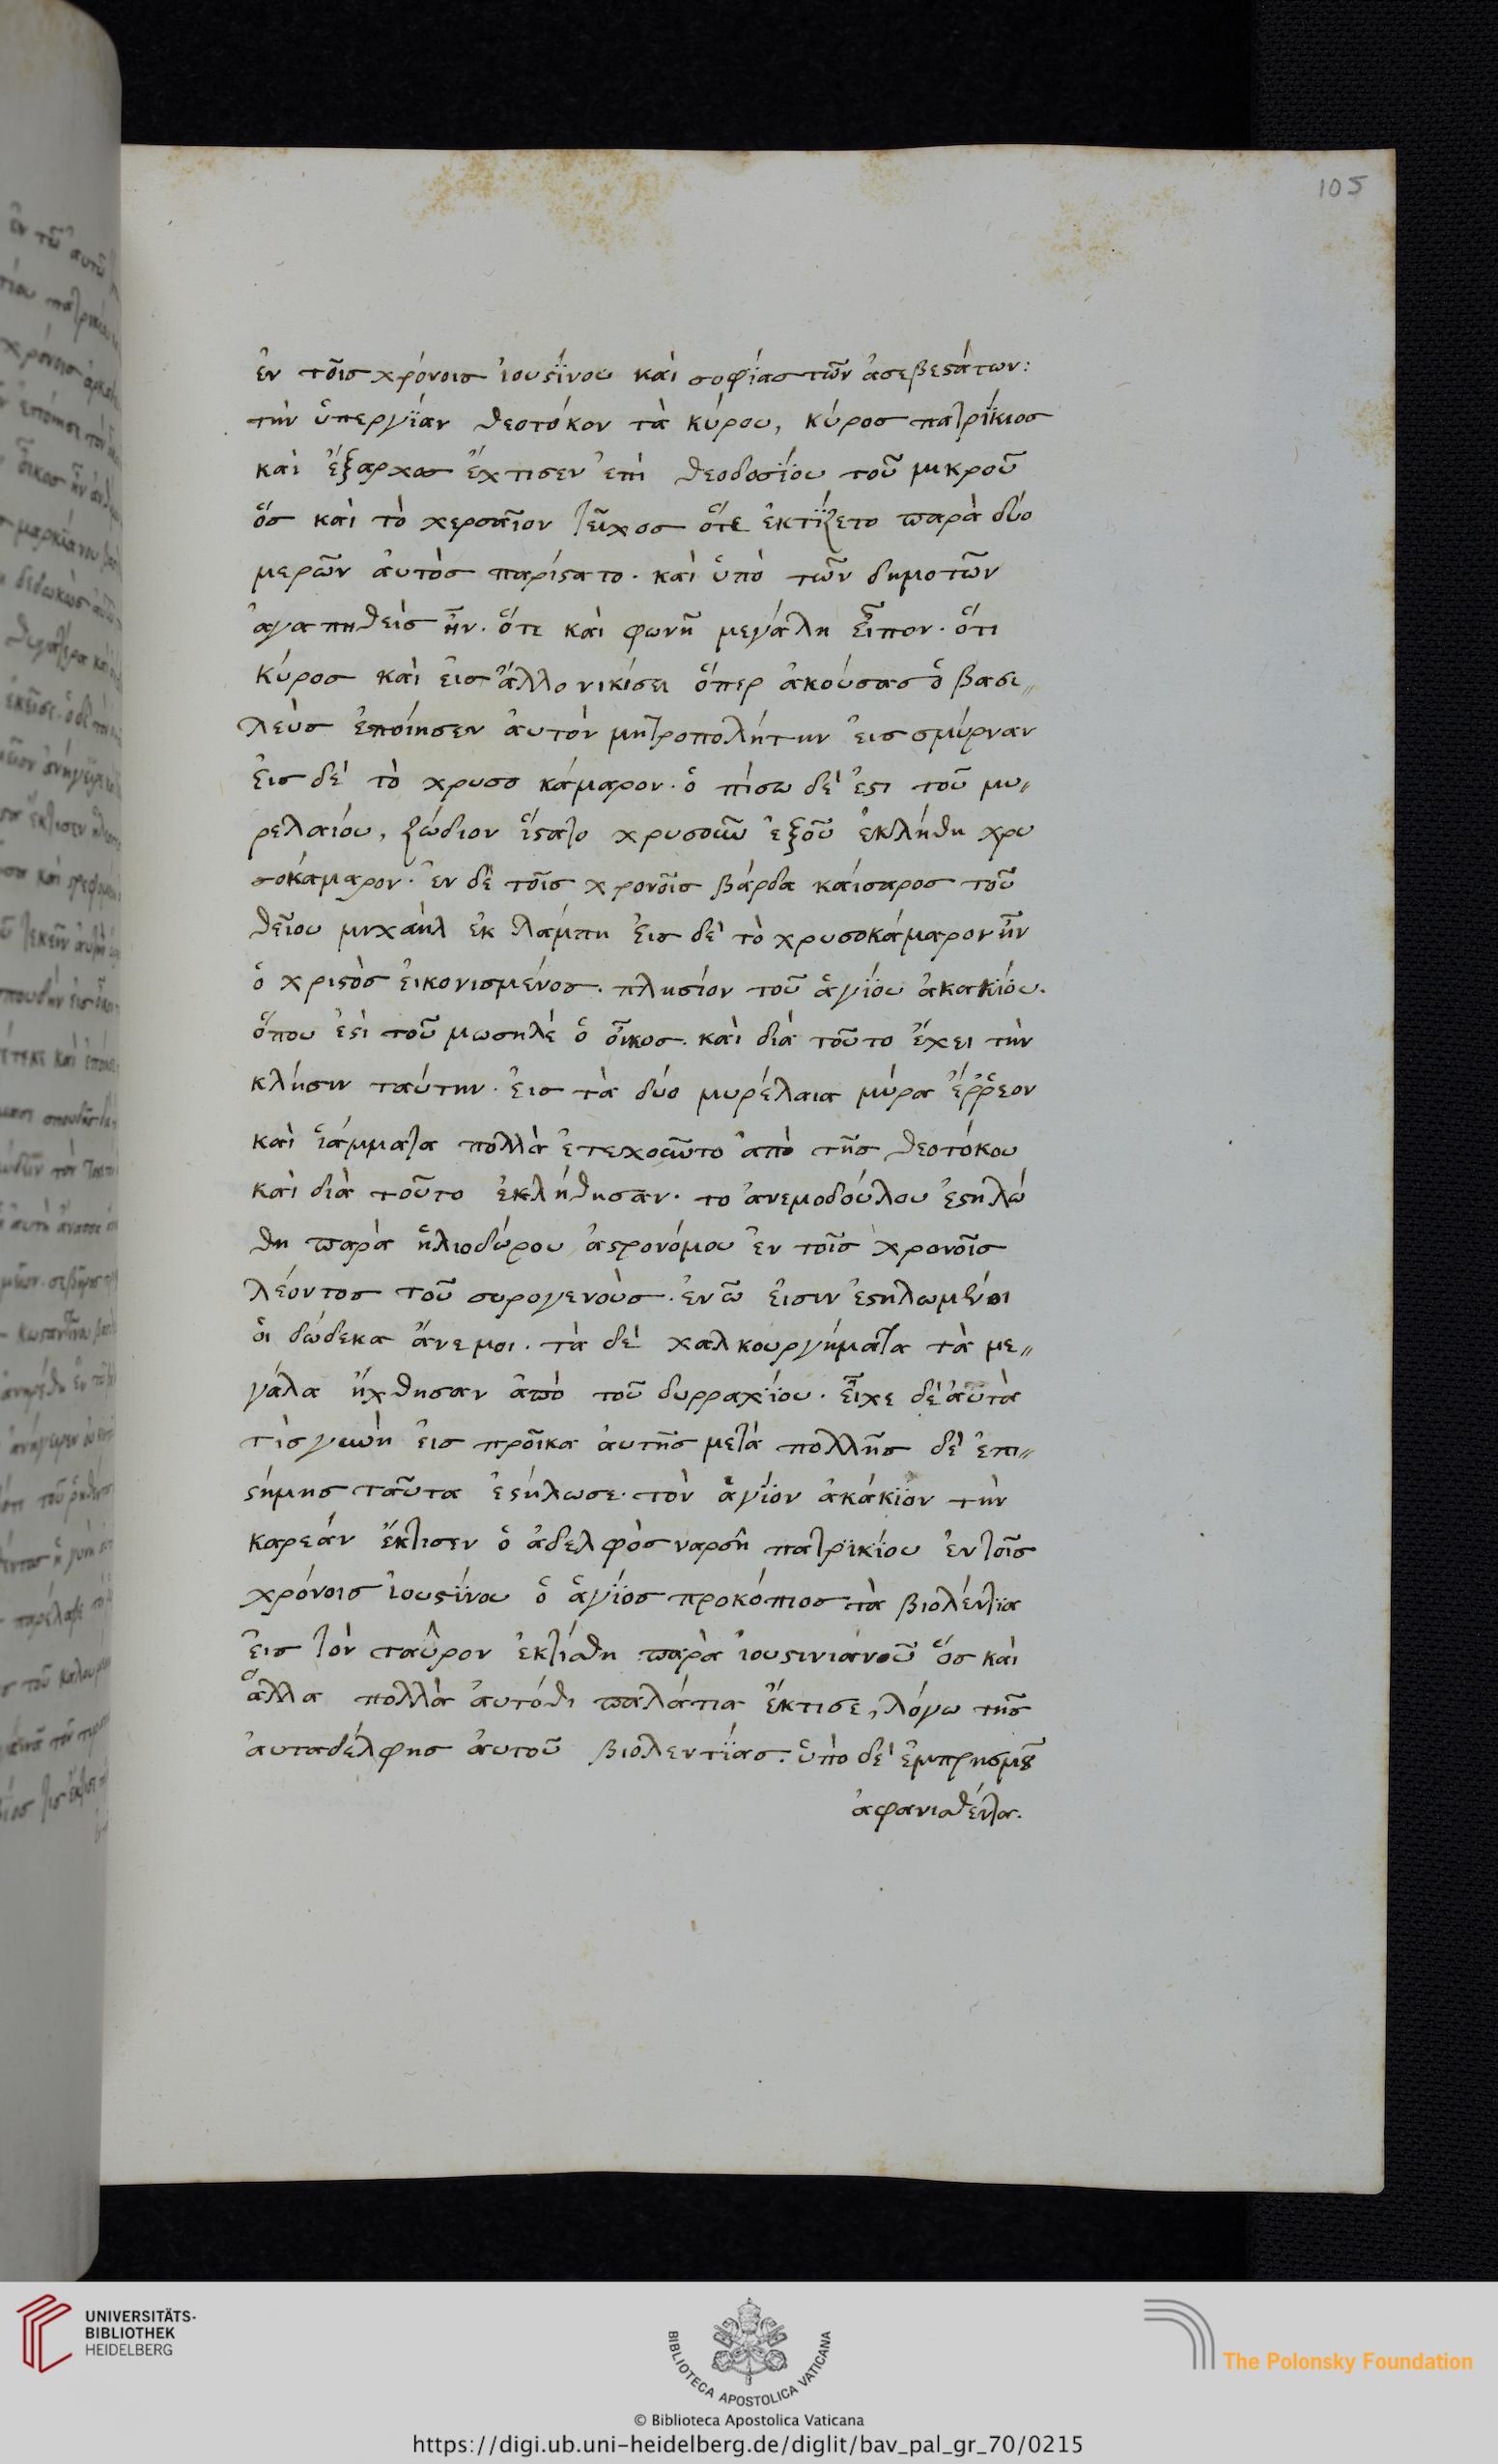 105
ἐν τοῖς χρόνοις ἰουστίνου καὶ σοφίας τῶν ἀσεβεστάτων:
τὴν ὑπεργίαν θεοτόκον τὰ κύρου, κύρος πατρίκιος
καὶ ἔξαρχος ἔχτισεν ἐπὶ θεοδοσίου τοῦ μικροῦ
ὅς καὶ τὸ χερσαῖον τεῖχος ὅτε ἐκτίζετο παρὰ δύο
μερῶν ἀυτὸς παρίστατο. καὶ ὑπὸ τῶν δημοτῶν
ἀγαπηθεὶς ἦν. ὅτε καὶ φωνῆ μεγάλη εἶπον. ὅτι
κύρος καὶ εἰς ἄλλο νικίσει ὅπερ ἀκούσας ὁ βασι„
λεὺς ἐποίησεν ἀυτὸν μητροπολήτην εἰς σμύρναν
εἰς δὲ τὸ χρυσο κάμαρον. ὁ πίσω δέ ἐστι τοῦ μυ„
ρελαίου, ζώδιον ἵστατο χρυσοῦν ἐξοῦ ἐκλήθη χρυ
σοκάμαρον. ἐν δὲ τοῖς χρονοῖς βάρδα καίσαρος τοῦ
θείου μιχαὴλ ἐκλάμπη εἰς δὲ τὸ χρυσοκάμαρον ἦν
ὁ χριστὸς εἰκονισμένος. πλησίον τοῦ ἁγίου ἀκακίου.
ὅπου ἐστὶ τοῦ μωσηλὲ ὁ οἶκος. καὶ διὰ τοῦτο ἔχει τὴν
κλήσιν ταύτην. εἰς τὰ δύο μυρέλαια μύρα ἔῤῥεον
καὶ ἰάμματα πολλὰ ἐτεχοῦντο ἀπὸ τῆς θεοτόκου
καὶ διὰ τοῦτο ἐκλήθησαν. το ἀνεμοδούλου ἐστηλώ
θη παρὰ ἡλιοδώρου ἀστρονόμου ἐν τοῖς χρονοῖς
λέοντος τοῦ συρογενοὺς. ἐν ὧ εἰσιν ἐστηλωμένοι
οἱ δώδεκα ἄνεμοι. τὰ δὲ χαλκουργήματα τὰ με„
γάλα ἤχθησαν ἀπὸ τοῦ δυρραχίου. εἶχε δὲ ἀυτὰ
τὶς γυνὴ εἰς προῖκα ἀυτῆς μετὰ πολλῆς δὲ ἐπι„
στήμης ταῦτα ἐστήλωσε. τὸν ἅγϊον ἀκάκϊον τὴν
καρεάν ἔκτισεν ὁ ἀδελφὸς ναρσῆ πατρϊκϊου ἐν τοῖς
χρόνοις ἰουστίνου ὁ ἅγϊος προκόπιος τὰ βιολέντϊα
εἰς τὸν ταῦρον ἐκτίσθη παρὰ ἰουστινιάνοῦ ὅς καὶ
ἄλλα πολλὰ ἀυτόθι παλάτια ἔκτισε, λόγω τῆς
ἀυταδέλφης ἀυτοῦ βιολεντϊας. ὑπὸ δὲ ἐμπρησμοῦ
ἀφανισθέντα.
UNIVERSITÄTS-
BIBLIOTHEK
HEIDELBERG
BIBLIOTECA APOSTOLICA VATICANA
The Polonsky Foundation
© Biblioteca Apostolica Vaticana
https://digi.ub.uni-heidelberg.de/diglit/bav_pal_gr_70/0215